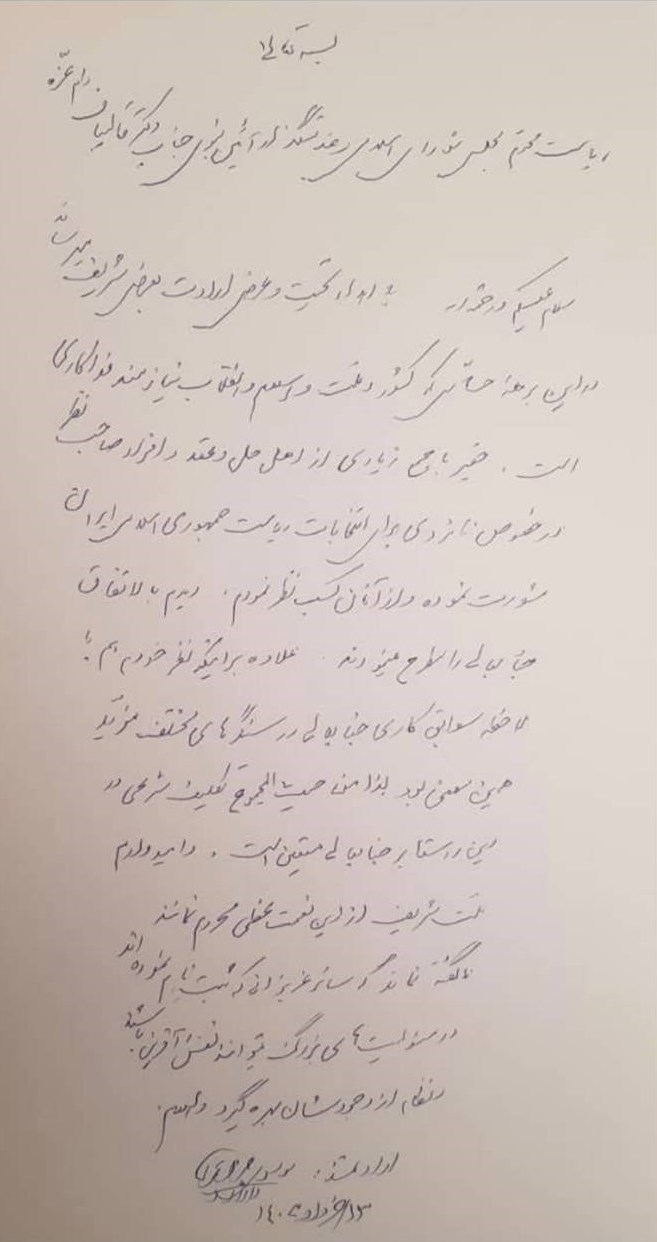 بسمه تعالی
ریاست محترم مجلس شورای اسلامی و خدمتگذار آئین نبوی جناب دکتر قالیباف دام عزّه
سلام علیکم و رحمة الله با اهداء تحیت و عرض ارادت بعرض شریف میرساند
در این برهه حساس که کشور و ملت و اسلام و انقلاب نیازمند فداکاری
است. حقیر با جمع زیادی از اهل حل و عقد و افراد صاحب نظر
در خصوص نامزدی برای انتخابات ریاست جمهوری اسلامی ایران
مشورت نموده و از آنان کسب نظر نمودم. دیدم بالاتفاق
جنابعالی را مطرح مینمودند. علاوه بر اینکه نظر خودم هم با
ملاحظه سوابق کاری جنابعالی در سنگرهای مختلف مؤید
همین معنی بود لذا من حیث المجموع تکلیف شرعی در
این راستا بر جنابعالی متعین است. و امیدوارم
ملت شریف از این نعمت عظمی محروم نمانند
ناگفته نماند که سائر عزیزانی که ثبت نام نموده اند
در مسئولیت های بزرگ میتوانند نقش آفرین باشند
و نظام از وجودشان بهره گیرد والسلام.
ارادتمند:
۱۳/خرداد/۱۴۰۳